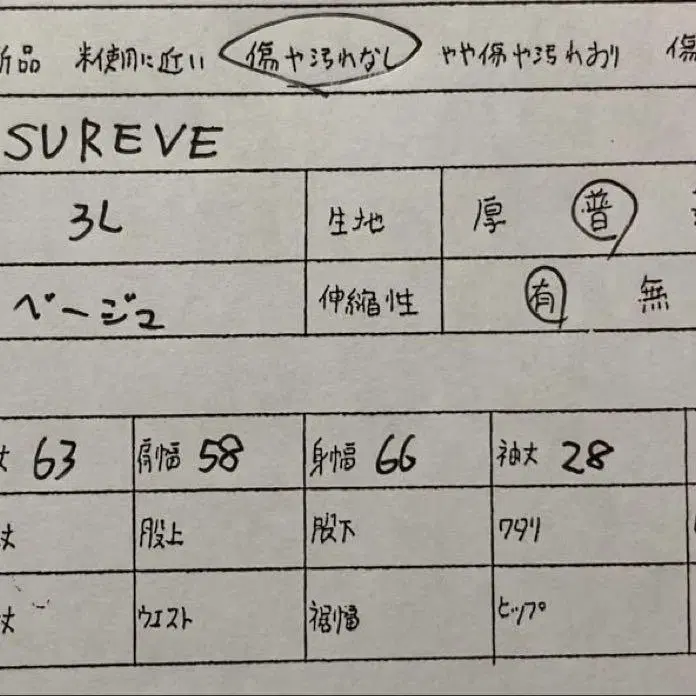 新品 未使用に近い 傷や汚れなし やや傷や汚れあり 傷
SUREVE
3L 生地 厚 普
ベージュ 伸縮性 有 無
丈 63 肩幅 58 身幅 66 袖丈 28
丈 股上 股下 ワタリ
丈 ウエスト 裾幅 ヒップ